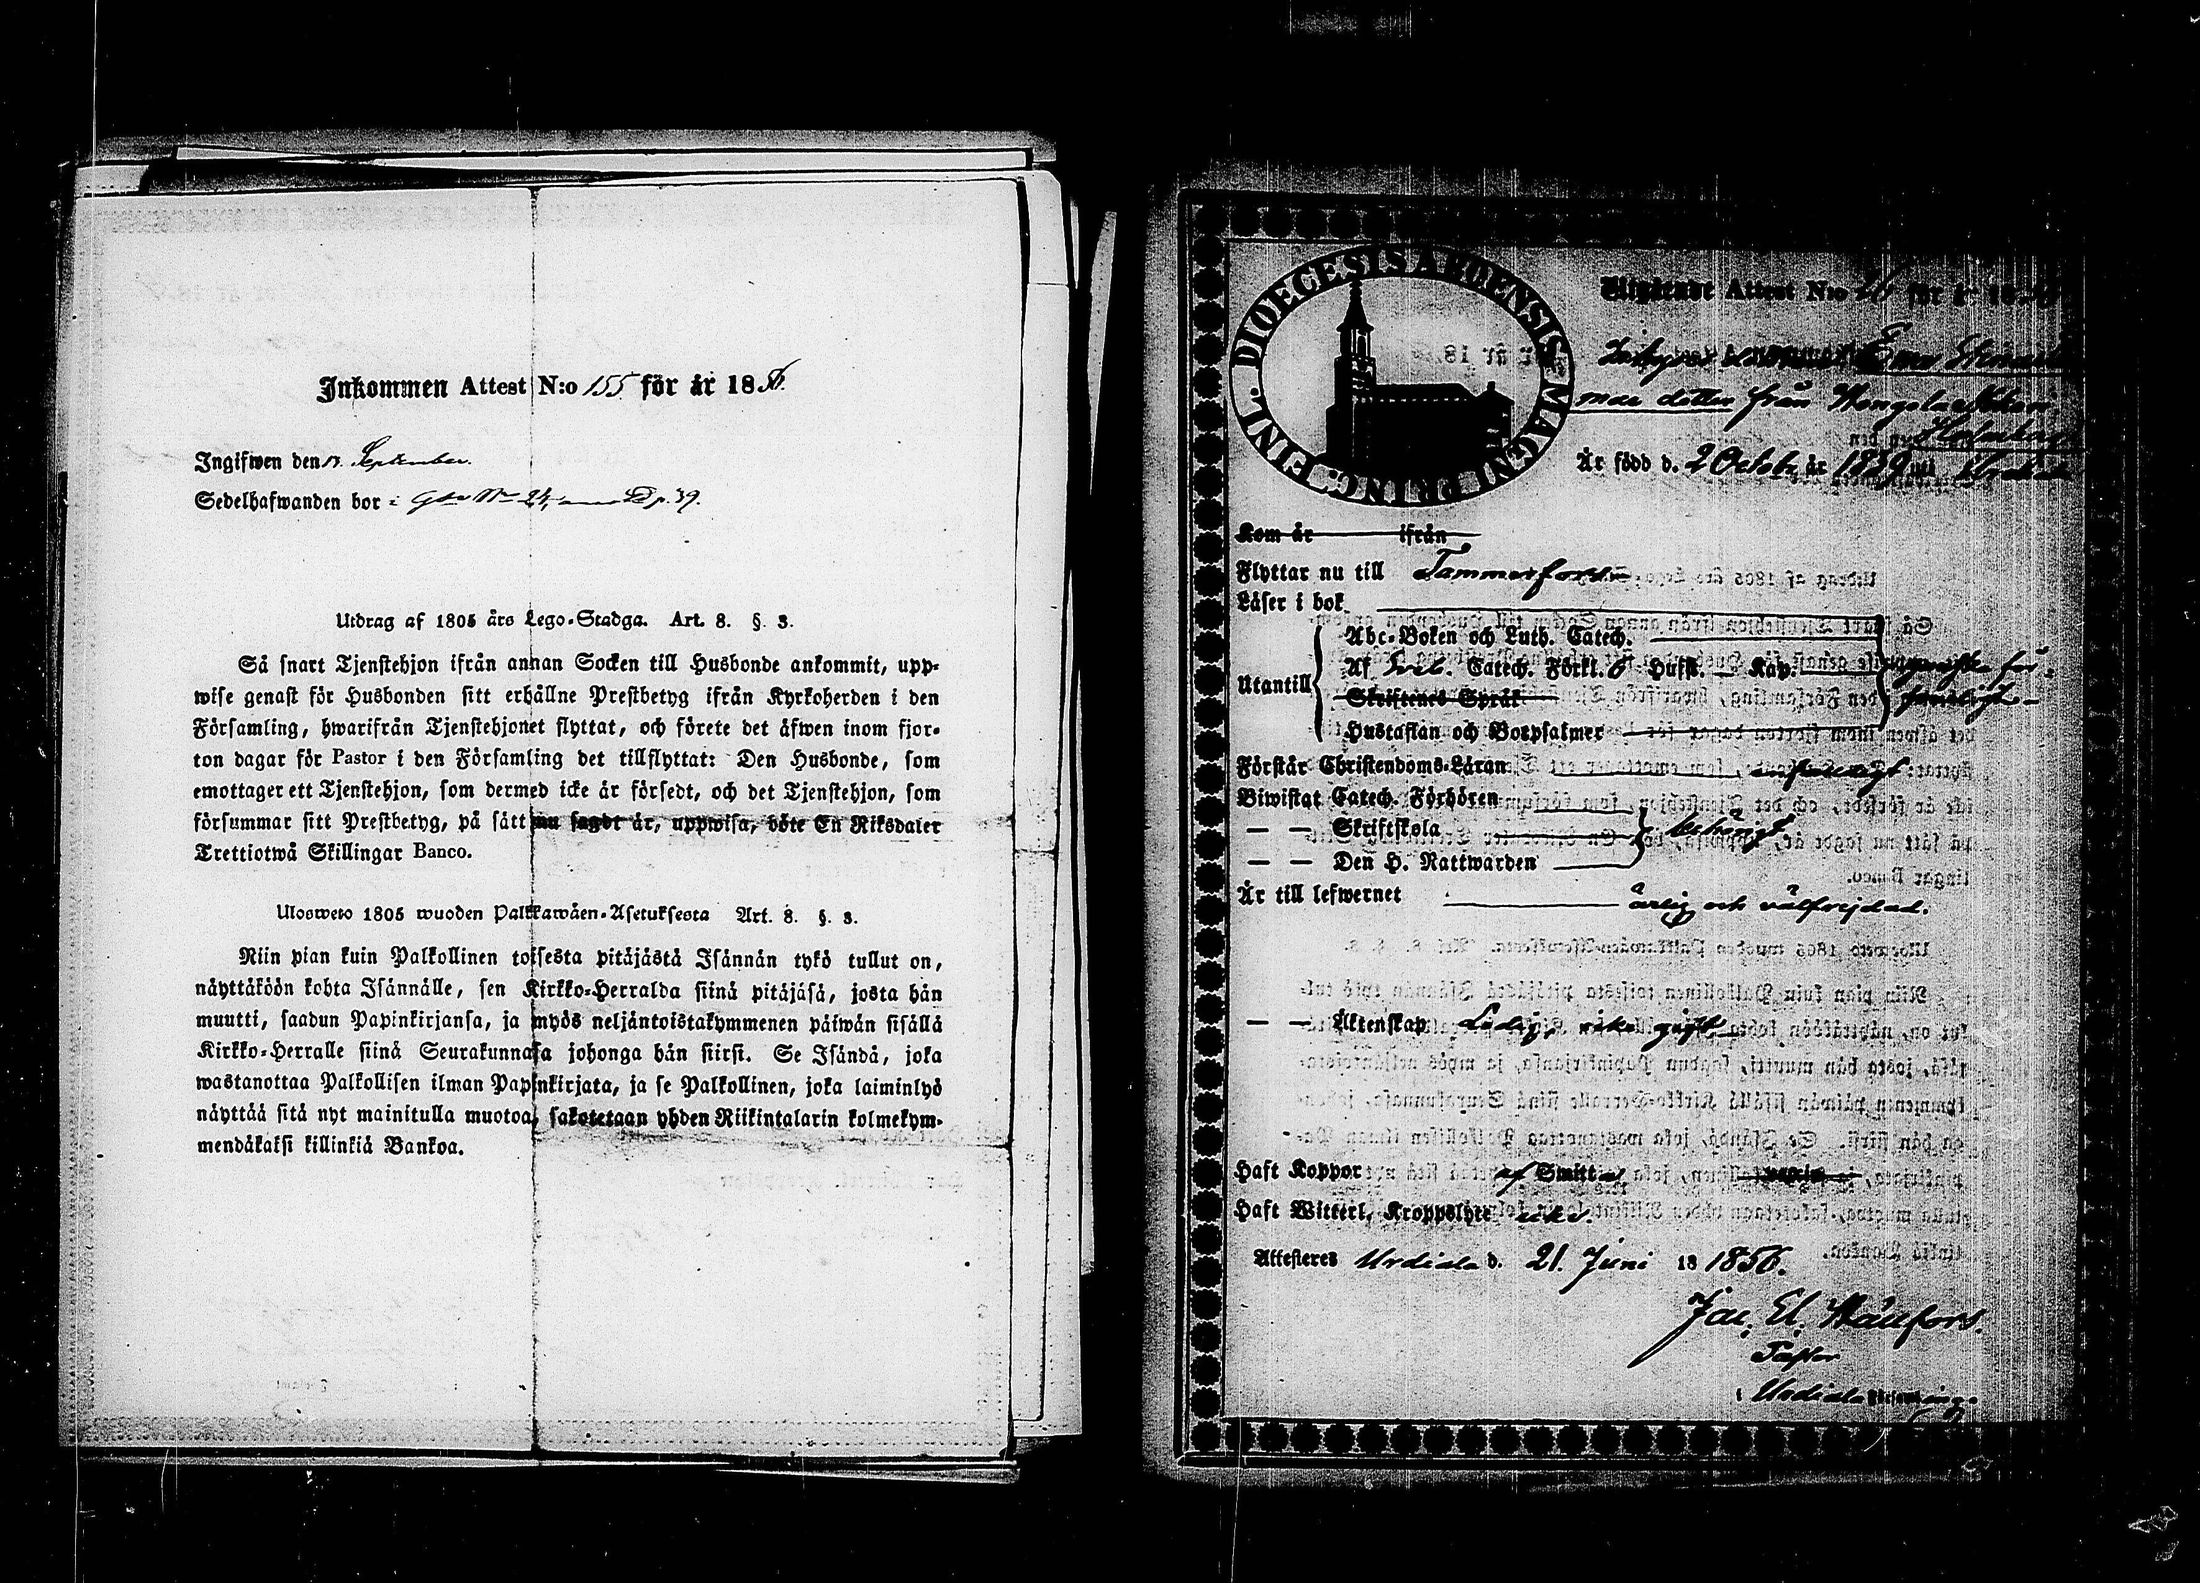 Inkommen Attest N:o 155 för år 1856.
Ingifwen den 13. September.
Sedelhafwanden bor i Gån No 24, p. 39.
Utdrag af 1805 års Lego-Stadga. Art. 8. §. 3.
Så snart Tjenstehjon ifrån annan Socken till Husbonde ankommit, upp-
wise genast för Husbonden sitt erhållne Prestbetyg ifrån Kyrkoherden i den
Församling, hwarifrån Tjenstehjonet flyttat, och förete det äfwen inom fjor-
ton dagar för Pastor i den Församling det tillflyttat: Den Husbonde, som
emottager ett Tjenstehjon, som dermed icke är försedt, och det Tjenstehjon, som
försummar sitt Prestbetyg, på sätt nu sagdt är, uppwisa, böte En Riksdaler
Trettiotwå Skillingar Banco.
Ulosweto 1805 wuoden Palkkawäen-Asetuksesta Art. 8. §. 3.
Niin pian kuin Palkollinen toisesta pitäjästä Isännän tykö tullut on,
näyttäköön kohta Isännälle, sen Kirkko-Herralda siinä pitäjäsä, josta hän
muutti, saadun Papinkirjansa, ja myös neljäntoistakymmenen päiwän sisällä
Kirkko-Herralle siinä Seurakunnasa johonga hän siirsi. Se Isändä, joka
wastanottaa Palkollisen ilman Papinkirjata, ja se Palkollinen, joka laiminlyö
näyttää sitä nyt mainitulla muotoa, sakotetaan yhden Riikintalarin kolmekym-
mendäkaksi killinkiä Bankoa.
DIOECESIS ABOENSIS MAGNI PRINC. FINL.
Utgående Attest N:o för år 18
Ewa
dotter från
Är född d. 2 Octob. år 1839 uti
Kom år ifrån
Flyttar nu till Tammerfors
Läser i bok
Utantill
Abc-Boken och Luth. Catech.
Af Sveb. Catech. Förkl. 8 Hufst. — Kap.
Skriftenes Språk
Hustaflan och Botpsalmer
Förstår Christendoms-Läran
Biwistat Catech. Förhören
— — Skriftskola behörigt
— — Den H. Nattwarden
Är till lefwernet ärlig och välfrejdad.
— — Äktenskap Ledig, icke gift
Haft Koppor af Smitta
Haft Witterl. Kroppslyte icke.
Attesteres Urdiala d. 21. Juni 18 1856.
Jac. El. Wällfors.
Pastor
i Urdiala